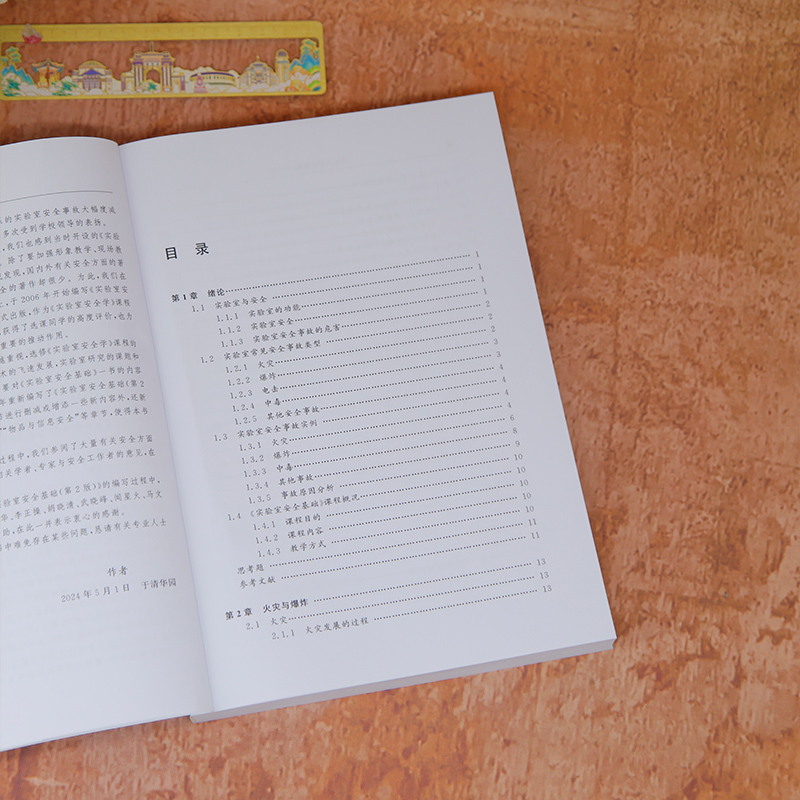 的实验室安全事故大幅度减
多次受到学校领导的表扬。
我们也感到当时开设的《实验
除了要加强形象教学、现场教
发现,国内外有关安全方面的著
全的著作却很少。为此,我们在
于2006年开始编写《实验室安
式出版,作为《实验室安全学》课程
获得了选课同学的高度评价,也为
重要的推动作用。
重视,选修《实验室安全学》课程的
术的飞速发展,实验室研究的课题和
要对《实验室安全基础》一书的内容
年重新编写了《实验室安全基础(第2
进行删减或增添一些新内容外,还新
“物品与信息安全”等章节,使得本书
过程中,我们参阅了大量有关安全方面
相关学者、专家与安全工作者的意见,在
验室安全基础(第2版)》的编写过程中,
华、李正操、胡晓清、武晓峰、闻星火、马文
助,在此一并表示衷心的感谢。
中难免存在某些问题,恳请有关专业人士
作者
2024年5月1日 于清华园
目 录
第1章 绪论 1
1.1 实验室与安全 1
1.1.1 实验室的功能 1
1.1.2 实验室安全 1
1.1.3 实验室安全事故的危害 2
1.2 实验室常见安全事故类型 2
1.2.1 火灾 2
1.2.2 爆炸 3
1.2.3 电击 4
1.2.4 中毒 4
1.2.5 其他安全事故 4
1.3 实验室安全事故实例 4
1.3.1 火灾 6
1.3.2 爆炸 8
1.3.3 中毒 9
1.3.4 其他事故 10
1.3.5 事故原因分析 10
1.4 《实验室安全基础》课程概况 10
1.4.1 课程目的 10
1.4.2 课程内容 10
1.4.3 教学方式 11
思考题 11
参考文献
第2章 火灾与爆炸 13
2.1 火灾 13
2.1.1 火灾发展的过程 13